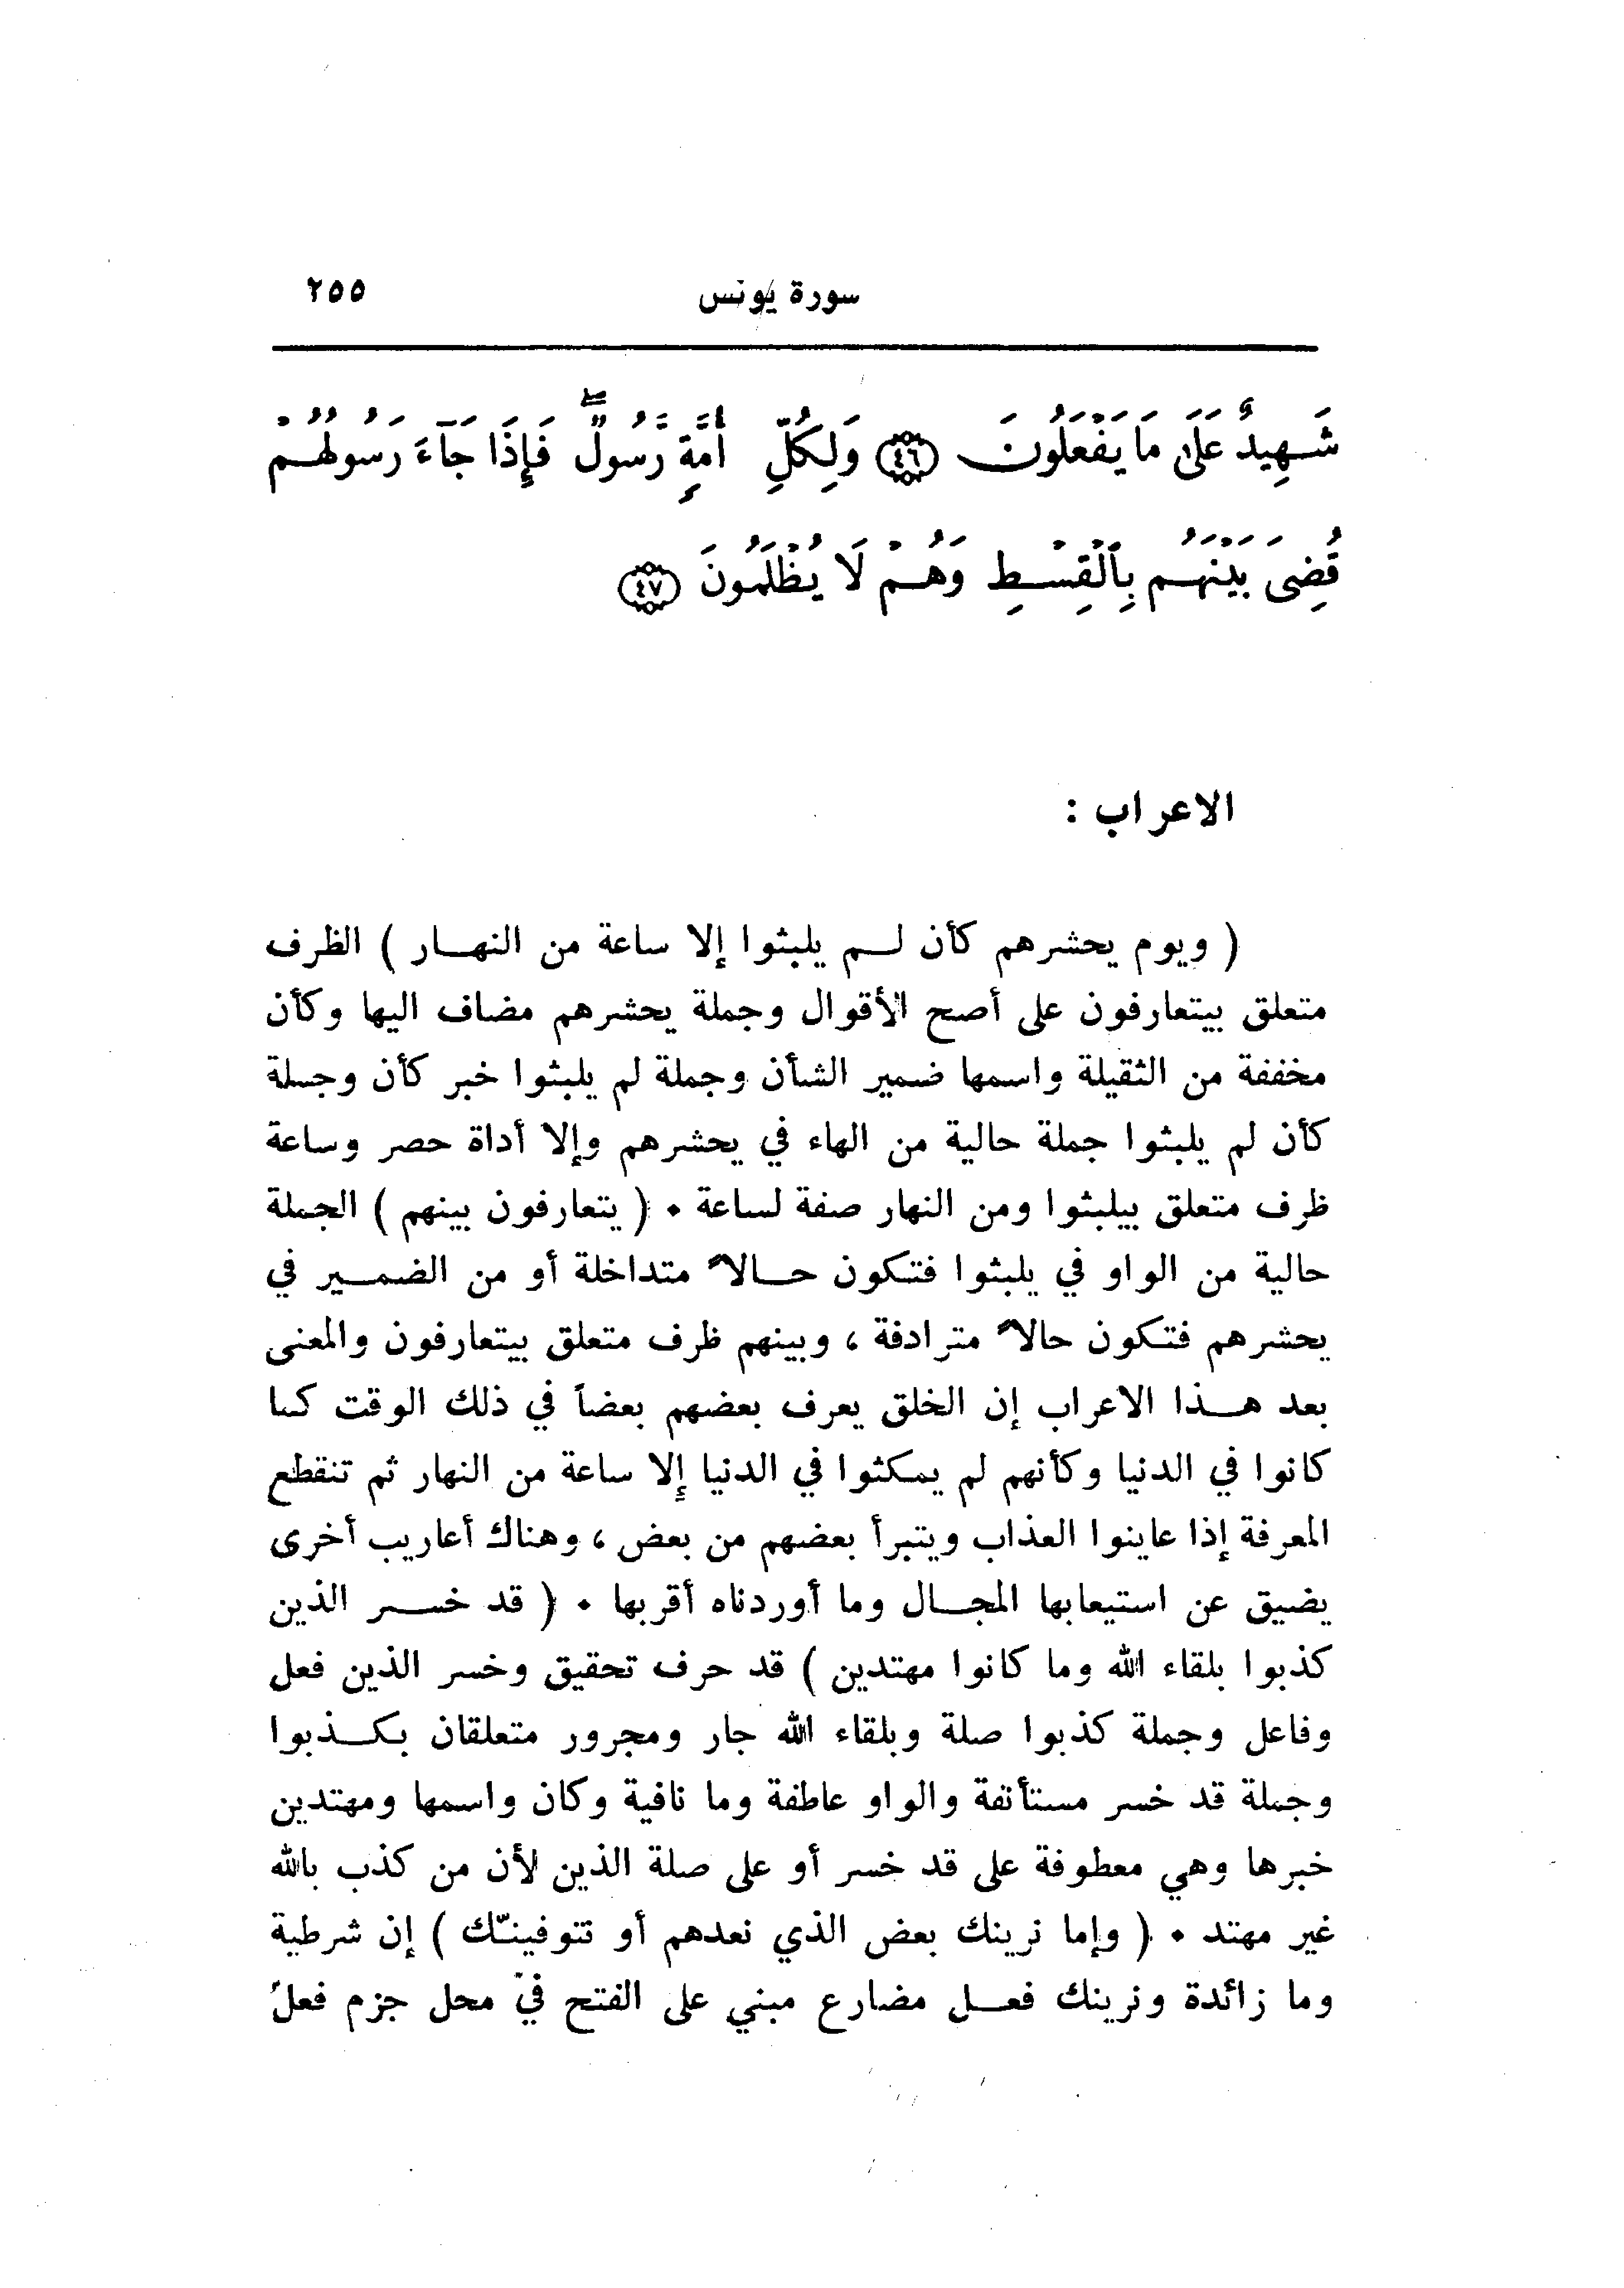 سورة يونس ٢٥٥
شَهِيدٌ عَلَىٰ مَا يَفْعَلُونَ ﴿٤٦﴾ وَلِكُلِّ أُمَّةٍ رَّسُولٌ ۖ فَإِذَا جَآءَ رَسُولُهُمْ
قُضِىَ بَيْنَهُم بِٱلْقِسْطِ وَهُمْ لَا يُظْلَمُونَ ﴿٤٧﴾
الاعراب :
( ويوم يحشرهم كأن لم يلبثوا إلا ساعة من النهار ) الظرف
متعلق بيتعارفون على أصح الأقوال وجملة يحشرهم مضاف اليها وكأن
مخففة من الثقيلة واسمها ضمير الشأن وجملة لم يلبثوا خبر كأن وجملة
كأن لم يلبثوا جملة حالية من الهاء في يحشرهم وإلا أداة حصر وساعة
ظرف متعلق بيلبثوا ومن النهار صفة لساعة . ( يتعارفون بينهم ) الجملة
حالية من الواو في يلبثوا فتكون حالاً متداخلة أو من الضمير في
يحشرهم فتكون حالاً مترادفة ، وبينهم ظرف متعلق بيتعارفون والمعنى
بعد هذا الاعراب إن الخلق يعرف بعضهم بعضاً في ذلك الوقت كما
كانوا في الدنيا وكأنهم لم يمكثوا في الدنيا إلا ساعة من النهار ثم تنقطع
المعرفة إذا عاينوا العذاب ويتبرأ بعضهم من بعض ، وهناك أعاريب أخرى
يضيق عن استيعابها المجال وما أوردناه أقربها . ( قد خسر الذين
كذبوا بلقاء الله وما كانوا مهتدين ) قد حرف تحقيق وخسر الذين فعل
وفاعل وجملة كذبوا صلة وبلقاء الله جار ومجرور متعلقان بكذبوا
وجملة قد خسر مستأنفة والواو عاطفة وما نافية وكان واسمها ومهتدين
خبرها وهي معطوفة على قد خسر أو على صلة الذين لأن من كذب بالله
غير مهتد . ( وإما نرينك بعض الذي نعدهم أو نتوفينّك ) إن شرطية
وما زائدة ونرينك فعل مضارع مبني على الفتح في محل جزم فعل